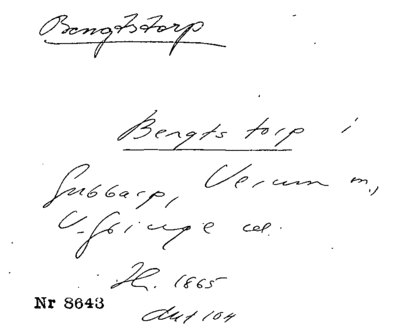 Bengtstorp
Bengts torp i
Gubbarp, Verum sn.,
V. Göinge
H. 1865
Nr 8643